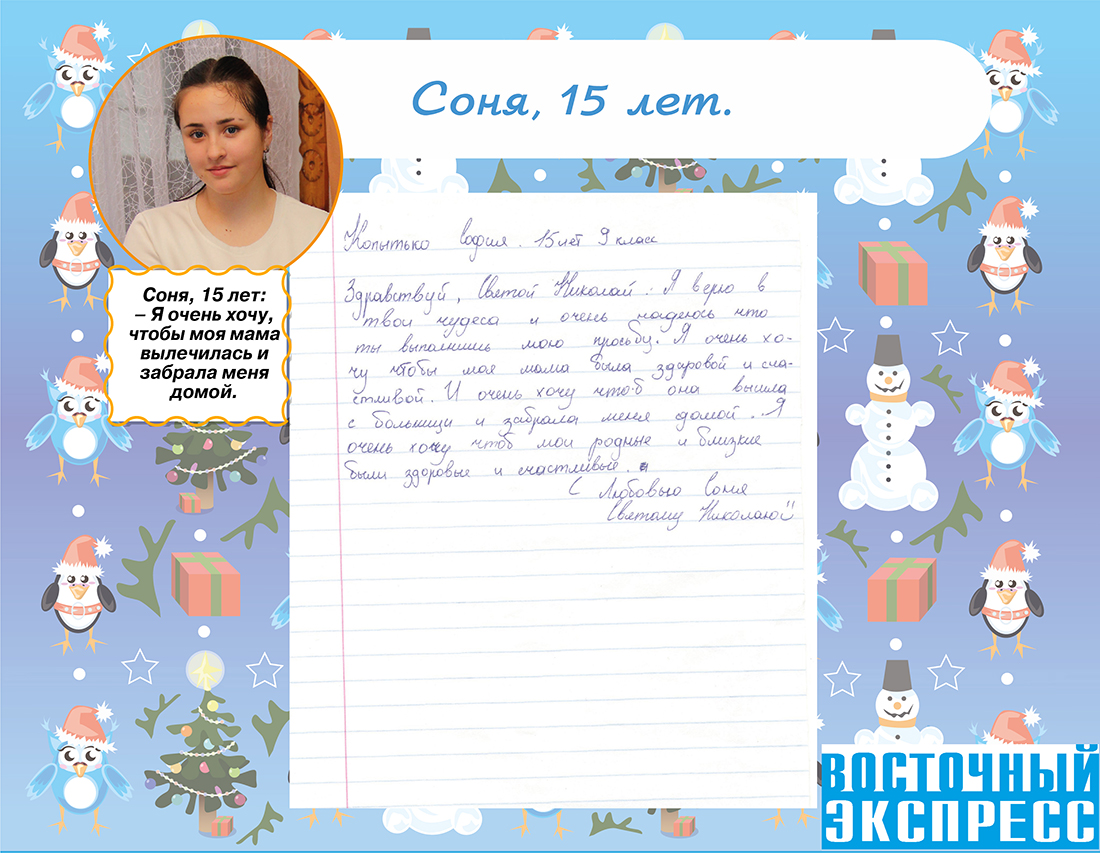 Соня, 15 лет.
Соня, 15 лет:
– Я очень хочу,
чтобы моя мама
вылечилась и
забрала меня
домой.
Копытько София. 15 лет 9 класс
Здравствуй, Святой Николай. Я верю в
твои чудеса и очень надеюсь что
ты выполнишь мою просьбу. Я очень хо-
чу чтобы моя мама была здоровой и сча-
стливой. И очень хочу чтоб она вышла
с больници и забрала меня домой. Я
очень хочу чтоб мои родные и близкие
были здоровые и счастливые.
С Любовью Соня
Святому Николаю
ВОСТОЧНЫЙ
ЭКСПРЕСС